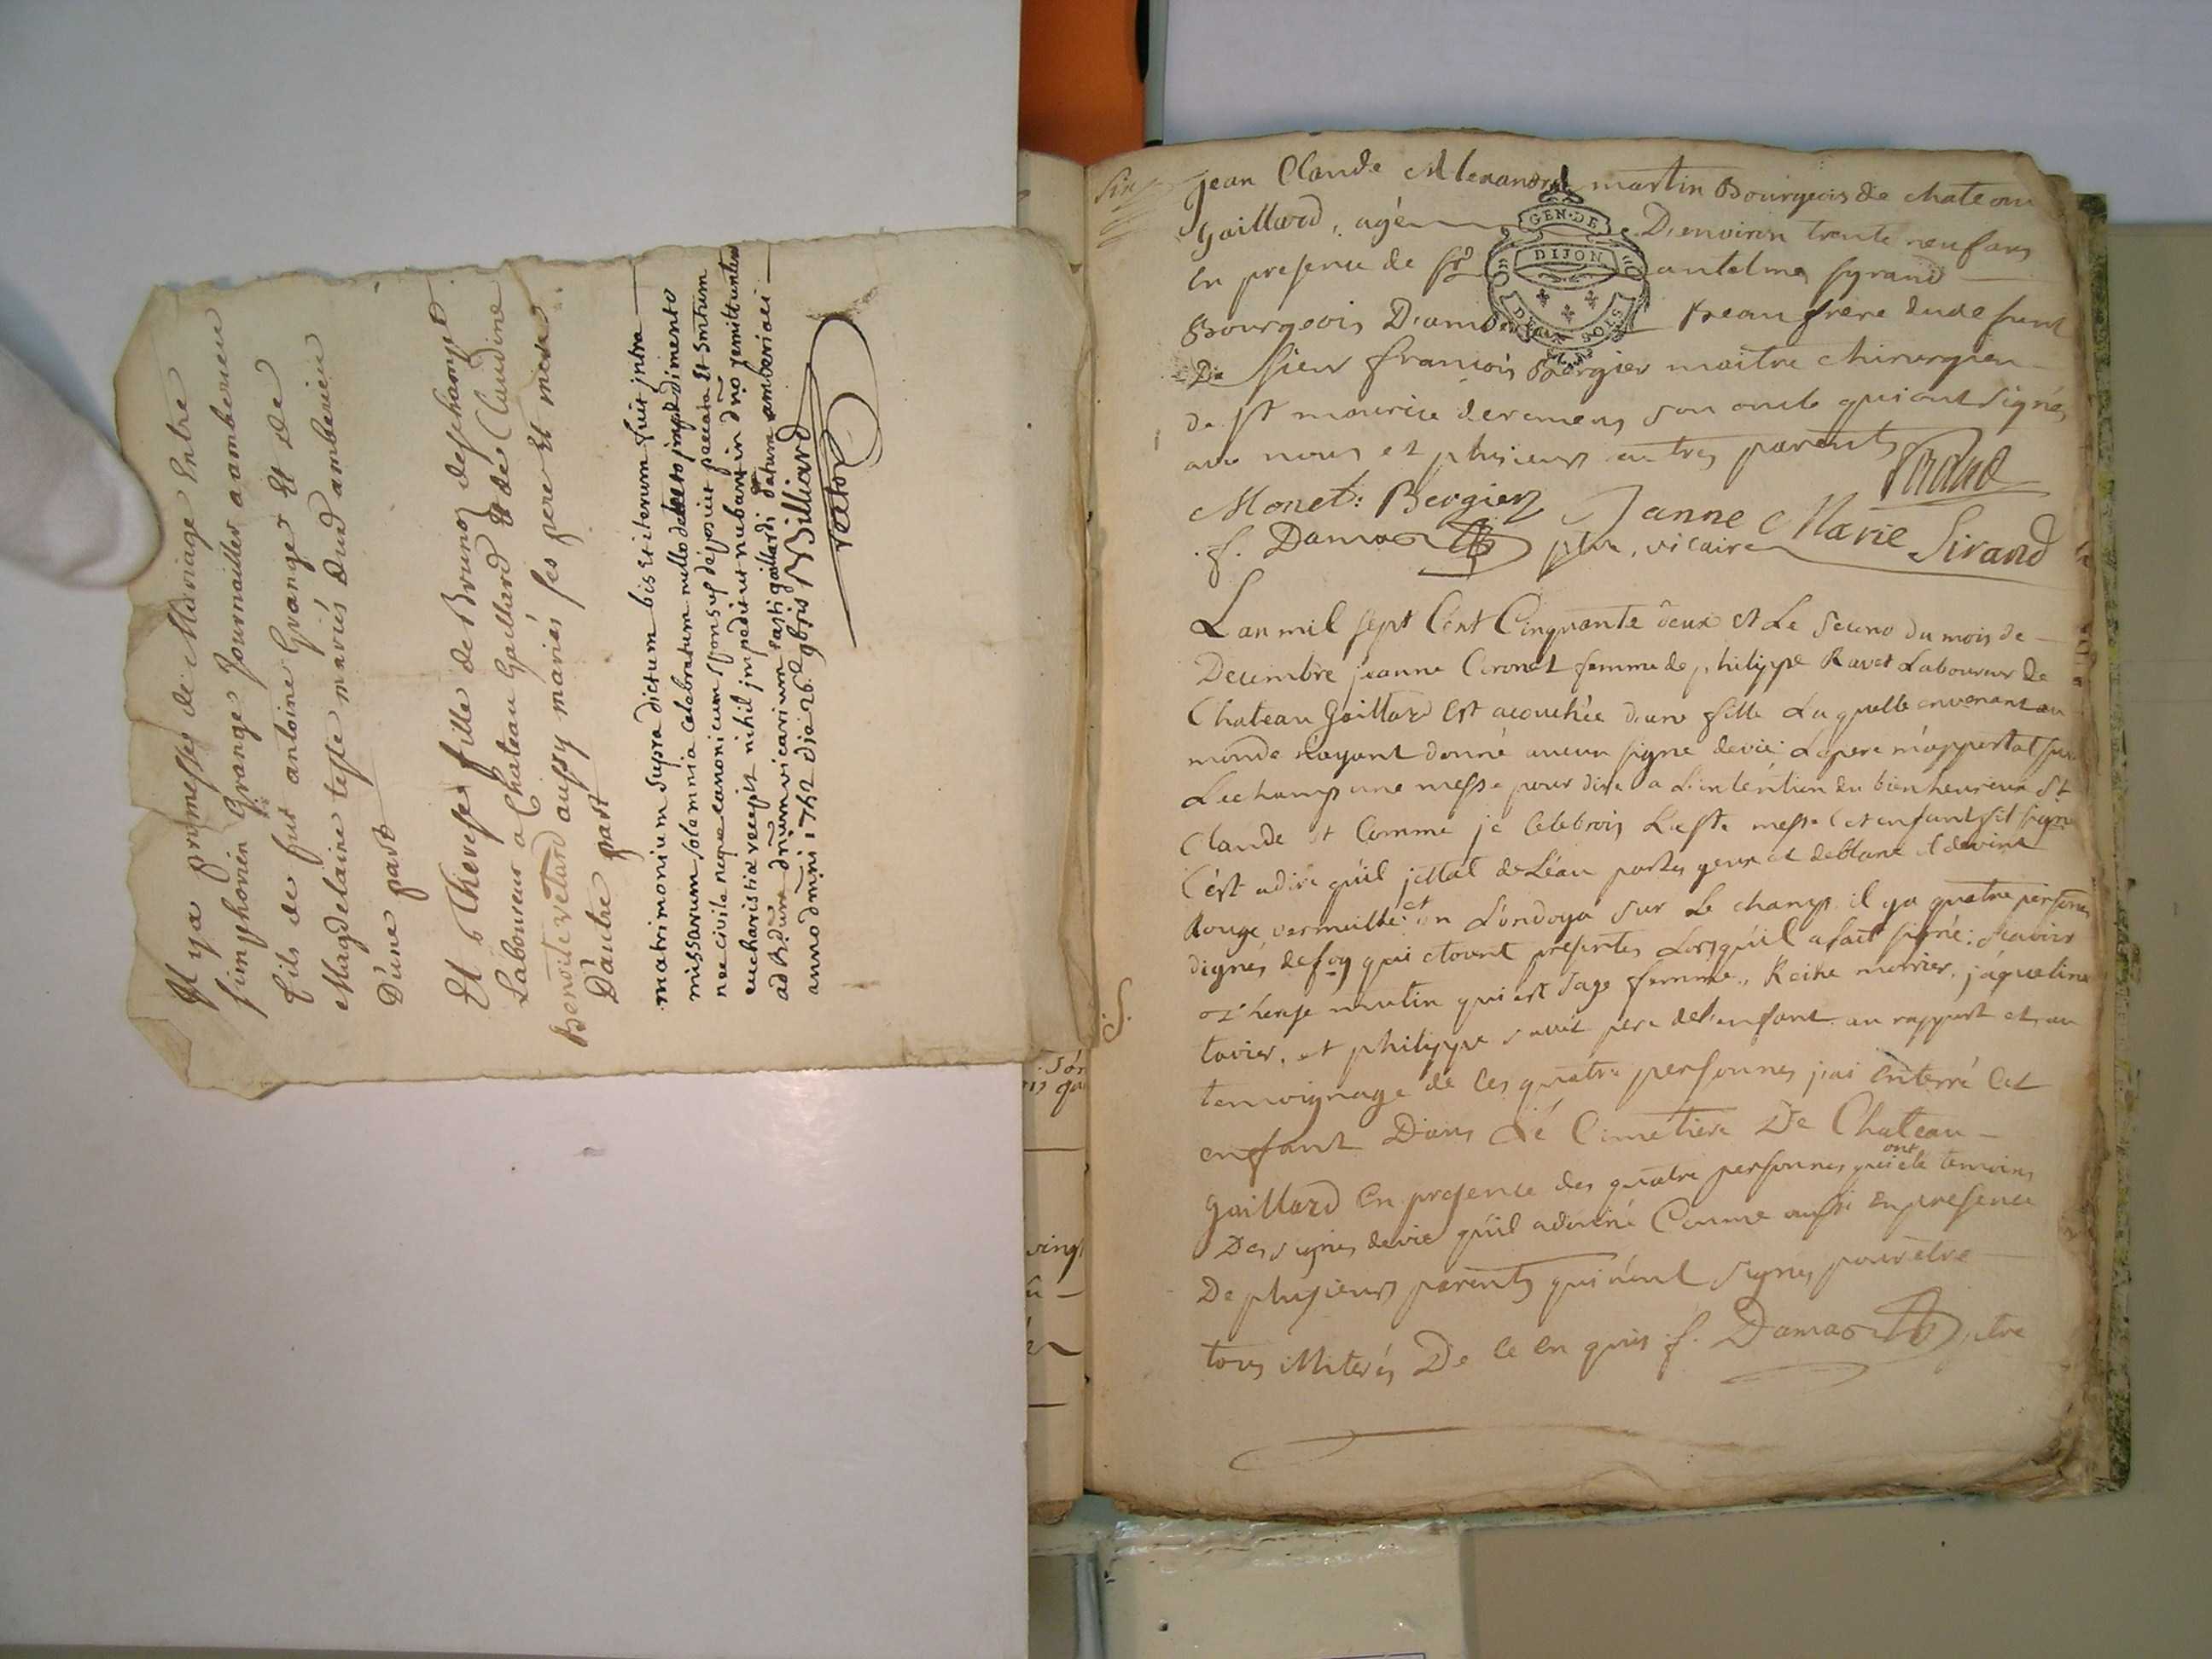 Il y a promesse de Mariage Entre
simphorien Grange Journaillier a amberieu
fils de fut antoine Grange Et de
Magdelaine tesse mariés dud amberieu
D'une part
Et Therese fille de Brunoz deschamps
Laboureur a Chateau Gaillard & de Claudine
Benoite vetard aussy mariés ses pere Et mere
D'autre part
matrimonium supra dictum bis et iterum fuit intra
missarum solemnia celebratum nullo detecto impedimento
nec civile neque canonicum sponsus deposuit peccata Et
eucharistiæ recepit nihil impedit ut nubant in dño
ad Rdum dnum vicarium casti gaillardi datum amberiaci
anno dmini 1752 die 26 9bris Billiard
rector
Jean Claude Alexandre martin Bourgeois de chateau
Gaillard, agé D'environ trente neuf ans
En presence de Sr antelme syrand
Bourgeois D'am beau frere du defunt
De sieur françois Bergier maitre chirurgien
de st maurice de remens son oncle qui ont signés
avec nous et plusieurs autres parents
Sirand
Monet: Bergier Janne Marie Sirand
f. Damas ptre, vicaire
GEN. DE
DIJON
DEUX SOLS
L'an mil sept Cent Cinquante deux et Le second du mois de
Decembre jeanne Coronet femme de philippe Ravet Laboureur de
Chateau Gaillard Est acouchée d'une fille La quelle en venant au
monde n'ayant donné aucun signe de vie: Le pere m'apportat sur
Le champ une messe pour dire a L'intention du bienheureux St
Claude et Comme je Celebrois La Ste messe Cet enfant fit signe
C'est a dire qu'il jettat de L'eau par les yeux et de blanc il devint
Rouge vermeille: et on L'ondoya sur Le champ. il y a quatre personnes
dignes de foy qui etoient presentes Lorsqu'il a fait signe: scavoir
therese mutin qui est sage femme, Reine morrier, jaqueline
tavier, et philippe ravet pere de l'enfant. au rapport et au
temoignage de Ces quatre personnes j'ai Enterré Cet
enfant Dans Le Cimetiere De Chateau
Gaillard En presence des quatre personnes qui ont été temoins
Des signes de vie qu'il a donné Comme aussi En presence
De plusieurs parents qui n'ont signés pour etre
tous illiterés De ce En quis f. Damas ptre